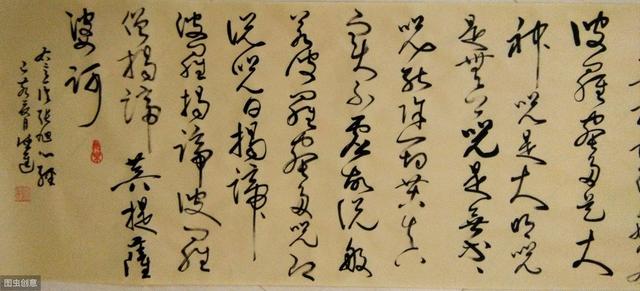 波羅蜜多是大
神咒是大明咒
是無上咒是無等々
咒能除一切苦真
實不虛故說般
若波羅蜜多咒即
說咒曰揭諦
波羅揭諦波羅
僧揭諦菩提薩
婆訶
張旭心經
图虫创意